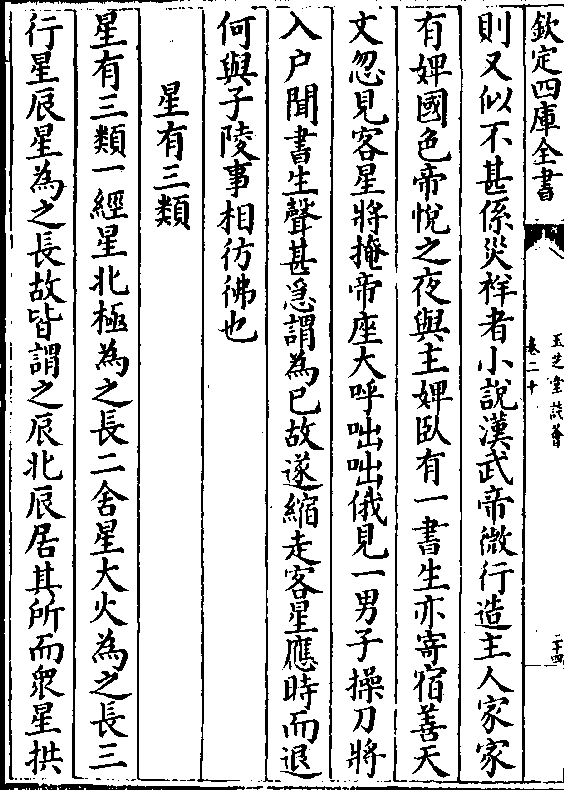 欽定四庫全書
玉芝堂談薈
卷二十
二十四
則又似不甚係災祥者小說漢武帝微行造主人家家
有婢國色帝悅之夜與主婢臥有一書生亦寄宿善天
文忽見客星將掩帝座大呼咄咄俄見一男子操刀將
入户聞書生聲甚急謂為己故遂縮走客星應時而退
何與子陵事相彷彿也
星有三類
星有三類一經星北極為之長二舍星大火為之長三
行星辰星為之長故皆謂之辰北辰居其所而衆星拱